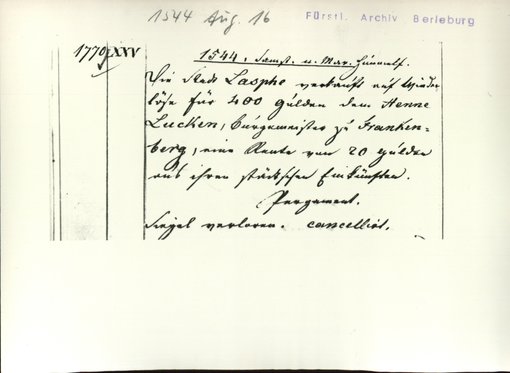 1544 Aug. 16
Fürstl. Archiv Berleburg
1770 XXV
1544, Samst. n. Mar. Himmelf.
Die Stadt Lasphe verkauft auf Wieder
löse für 400 Gulden dem Henne
Lucken, Bürgermeister zu Franken-
berg, eine Rente von 20 Gulden
aus ihren städtischen Einkünften.
Pergament.
Siegel verloren. cancellirt.